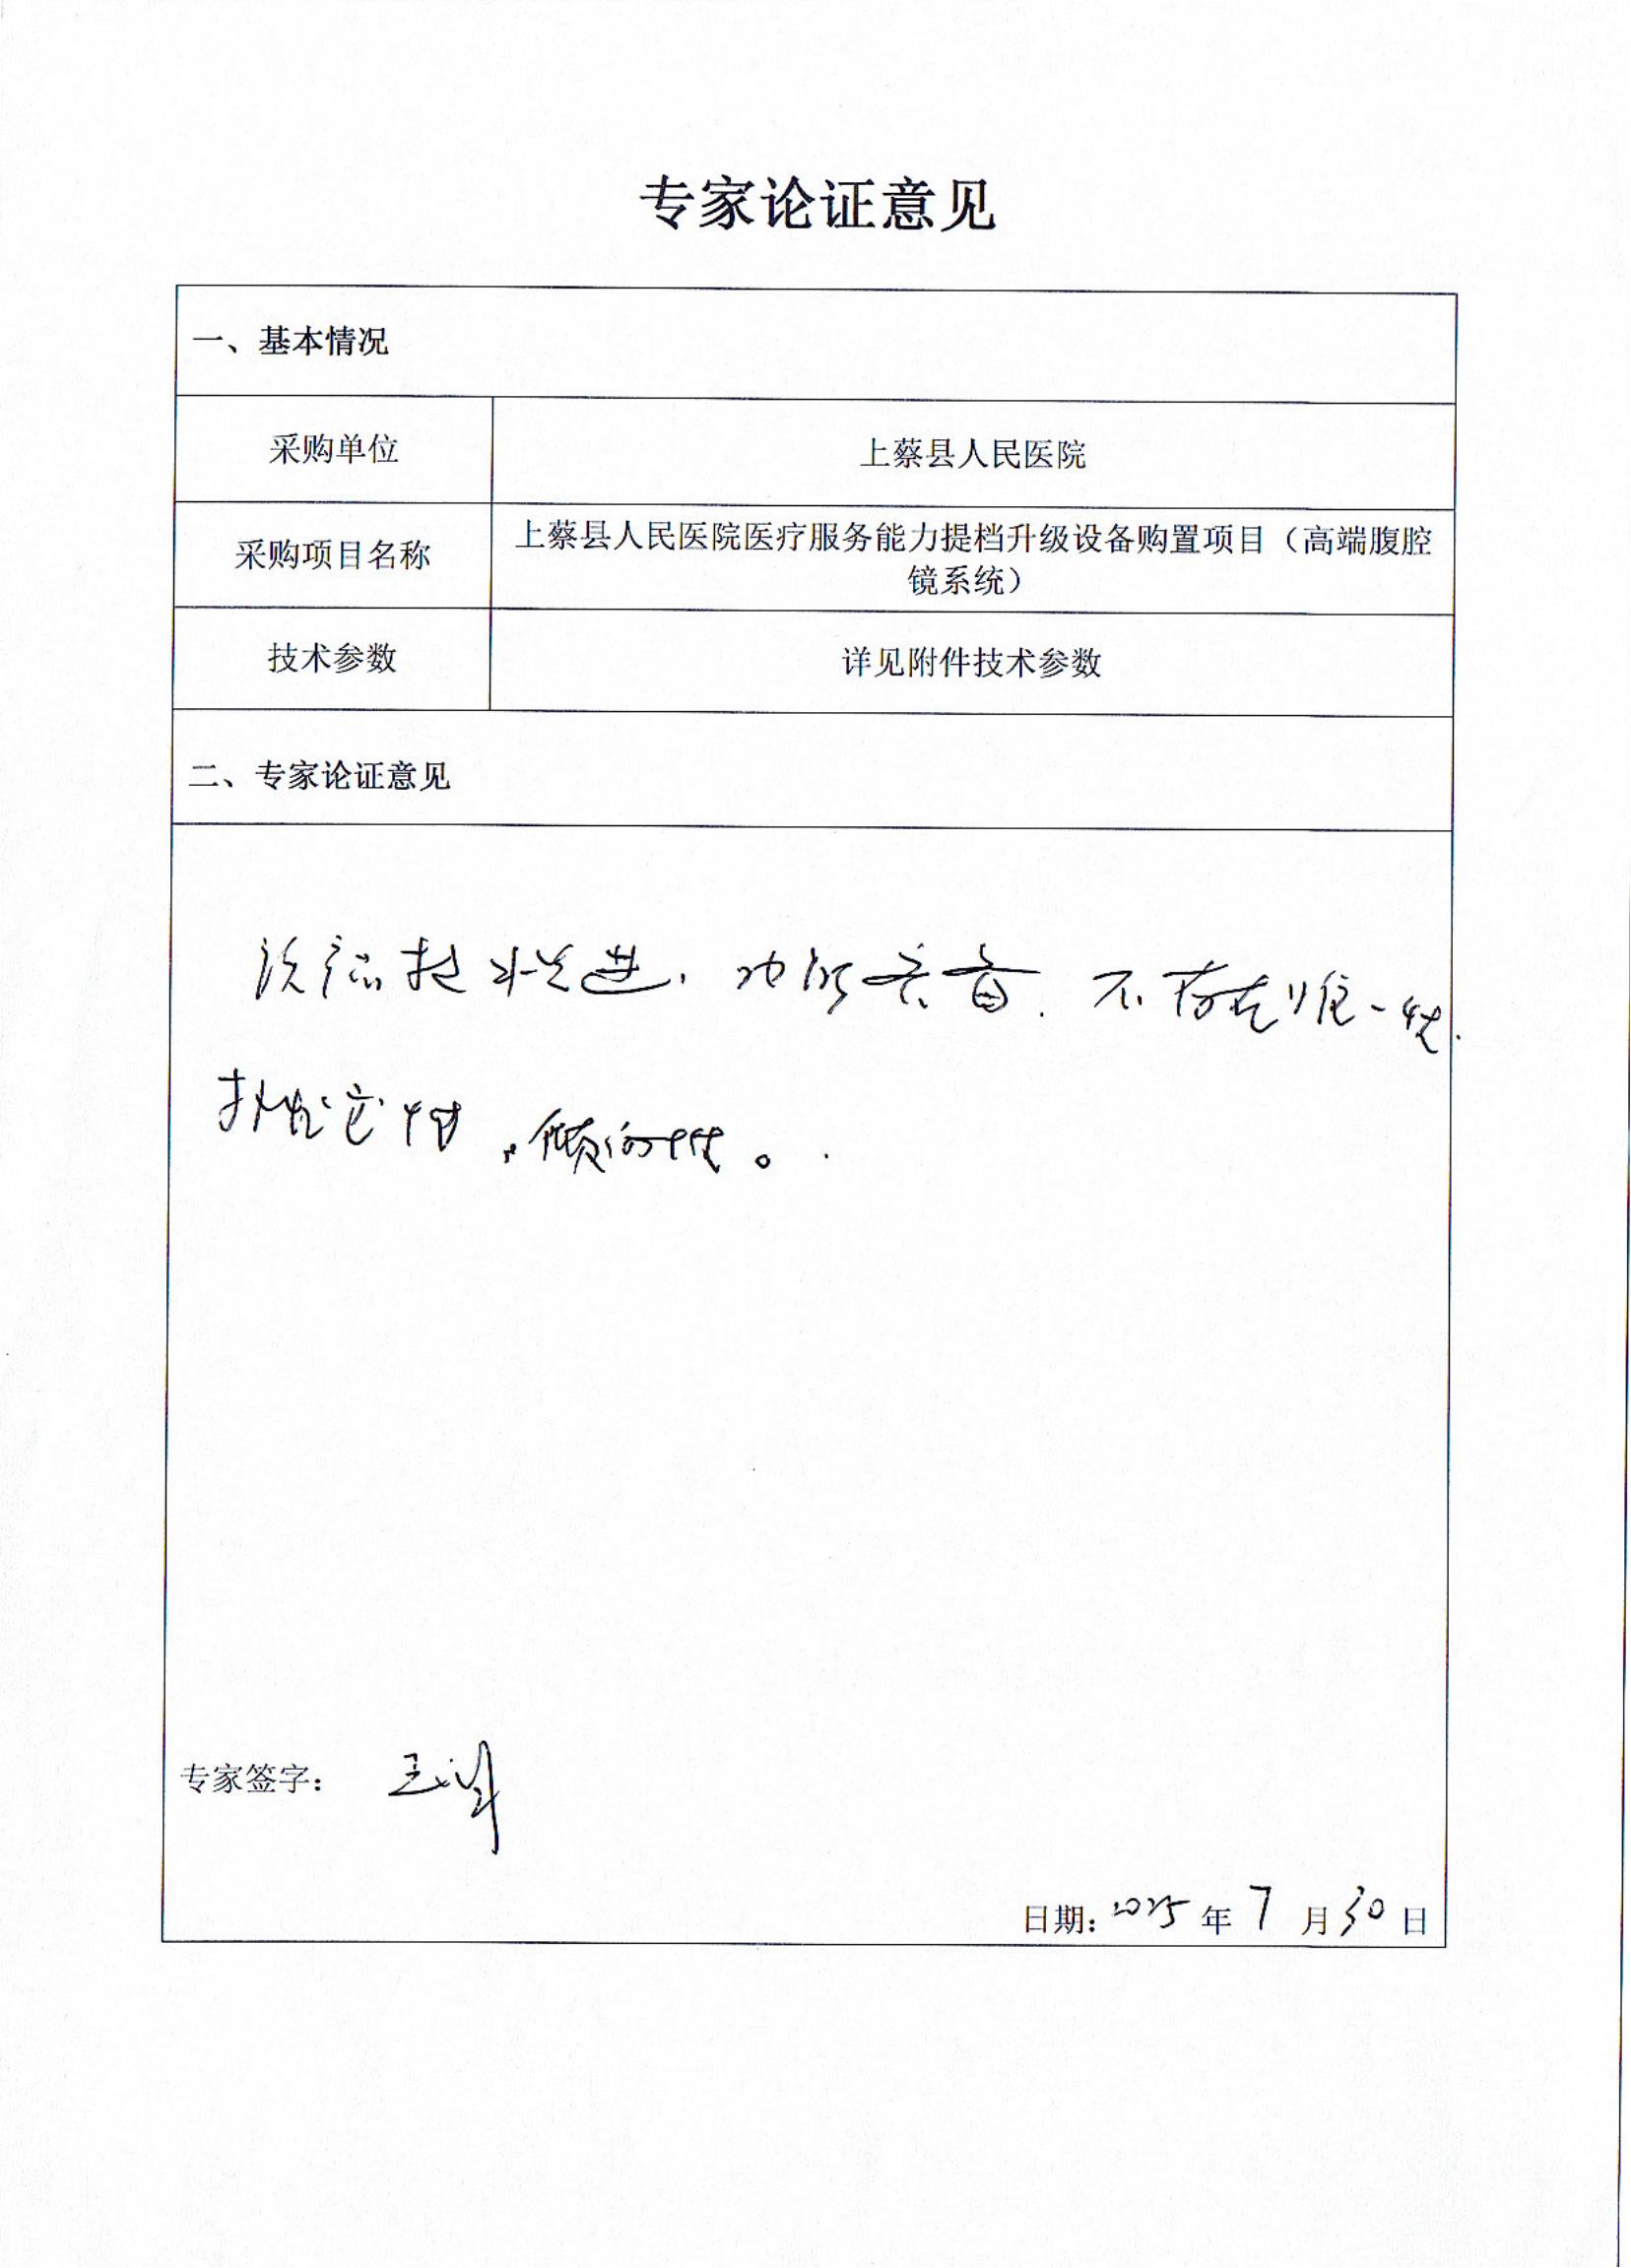 专家论证意见
一、基本情况
采购单位
上蔡县人民医院
采购项目名称
上蔡县人民医院医疗服务能力提档升级设备购置项目（高端腹腔
镜系统）
技术参数
详见附件技术参数
二、专家论证意见
该产品技术先进，功能齐备，不存在唯一性，
排他性，倾向性。
专家签字：
日期：2025年7月30日